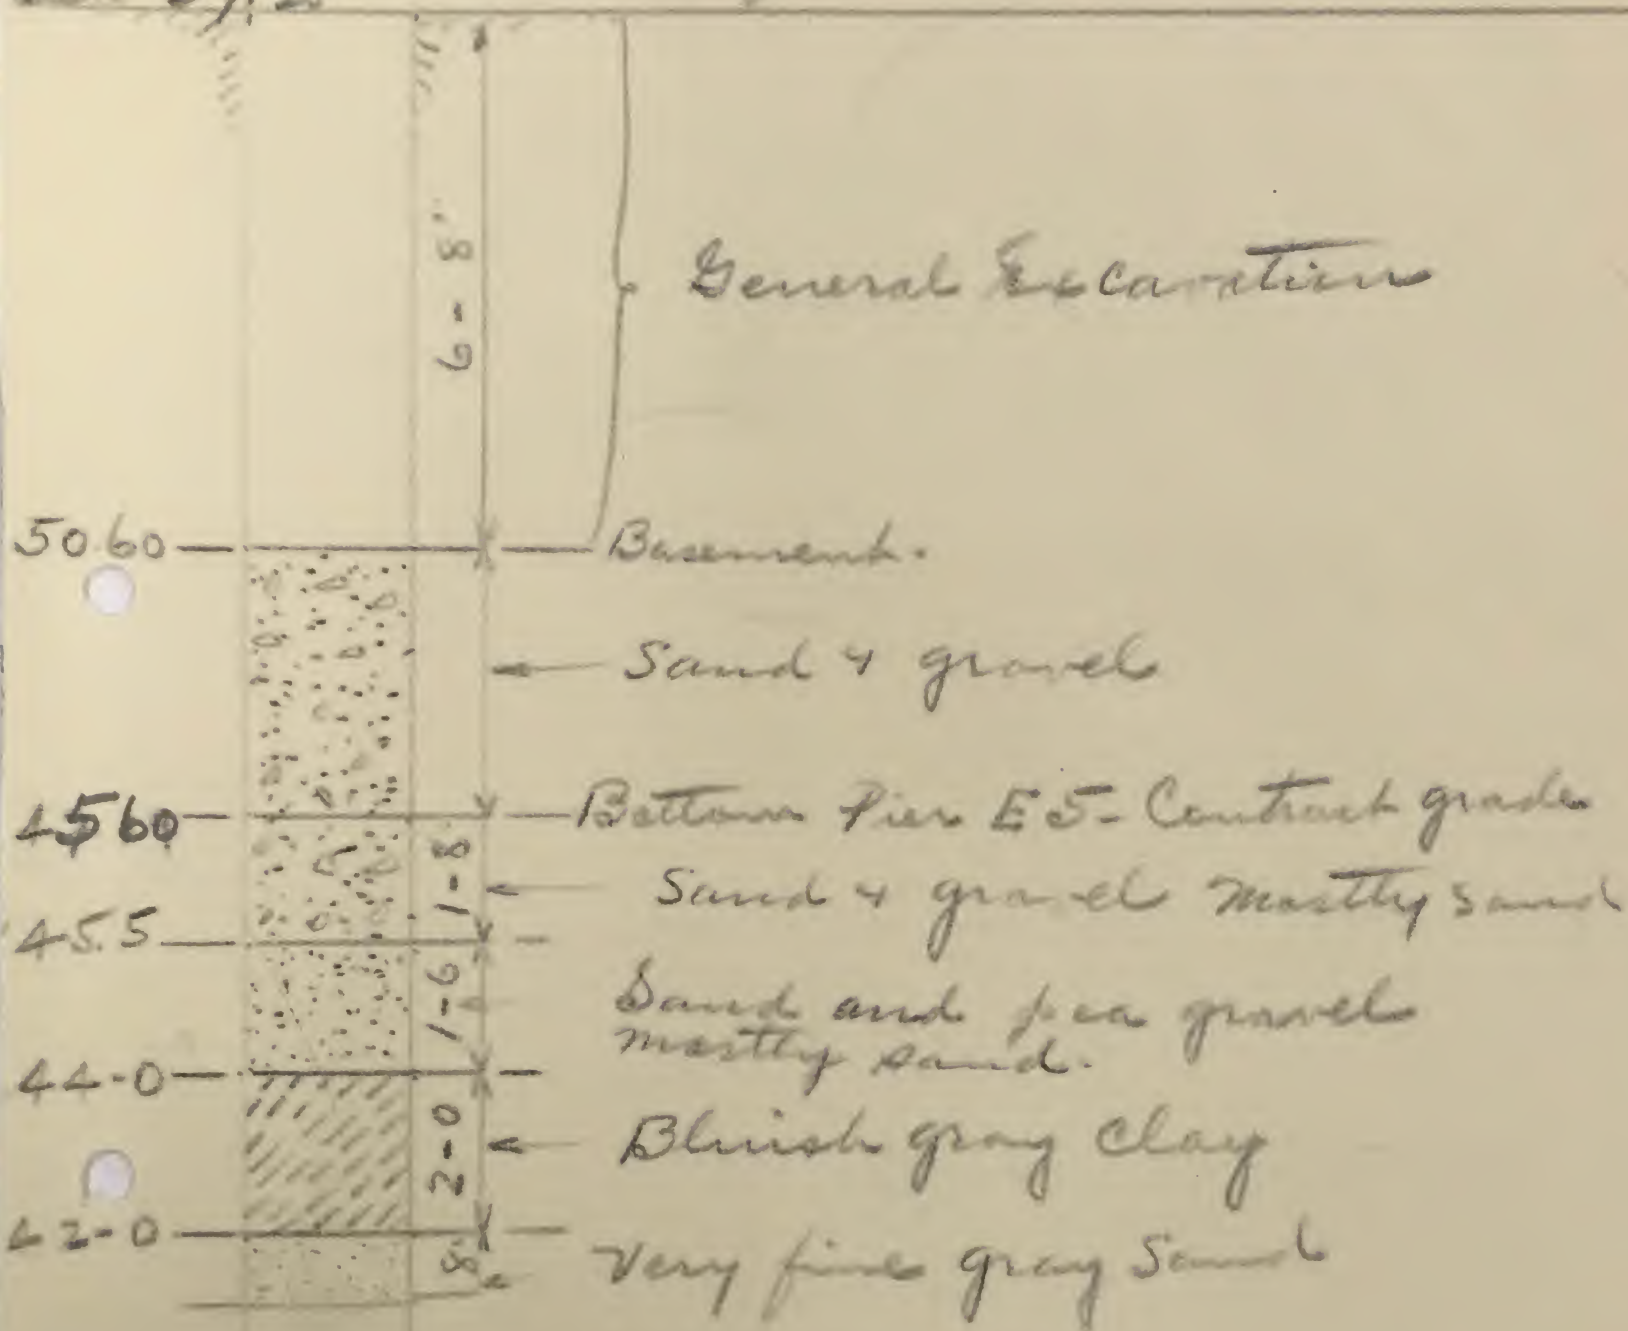 General Excavation
6 - 8"
50.60 Basement.
Sand & gravel
4560 Bottom Pier E5 - Contract grade
1-8 Sand & gravel mostly sand
45.5
1-6 Sand and pea gravel
mostly sand.
44-0
2-0 Bluish gray clay
42-0
8" Very fine gray Sand